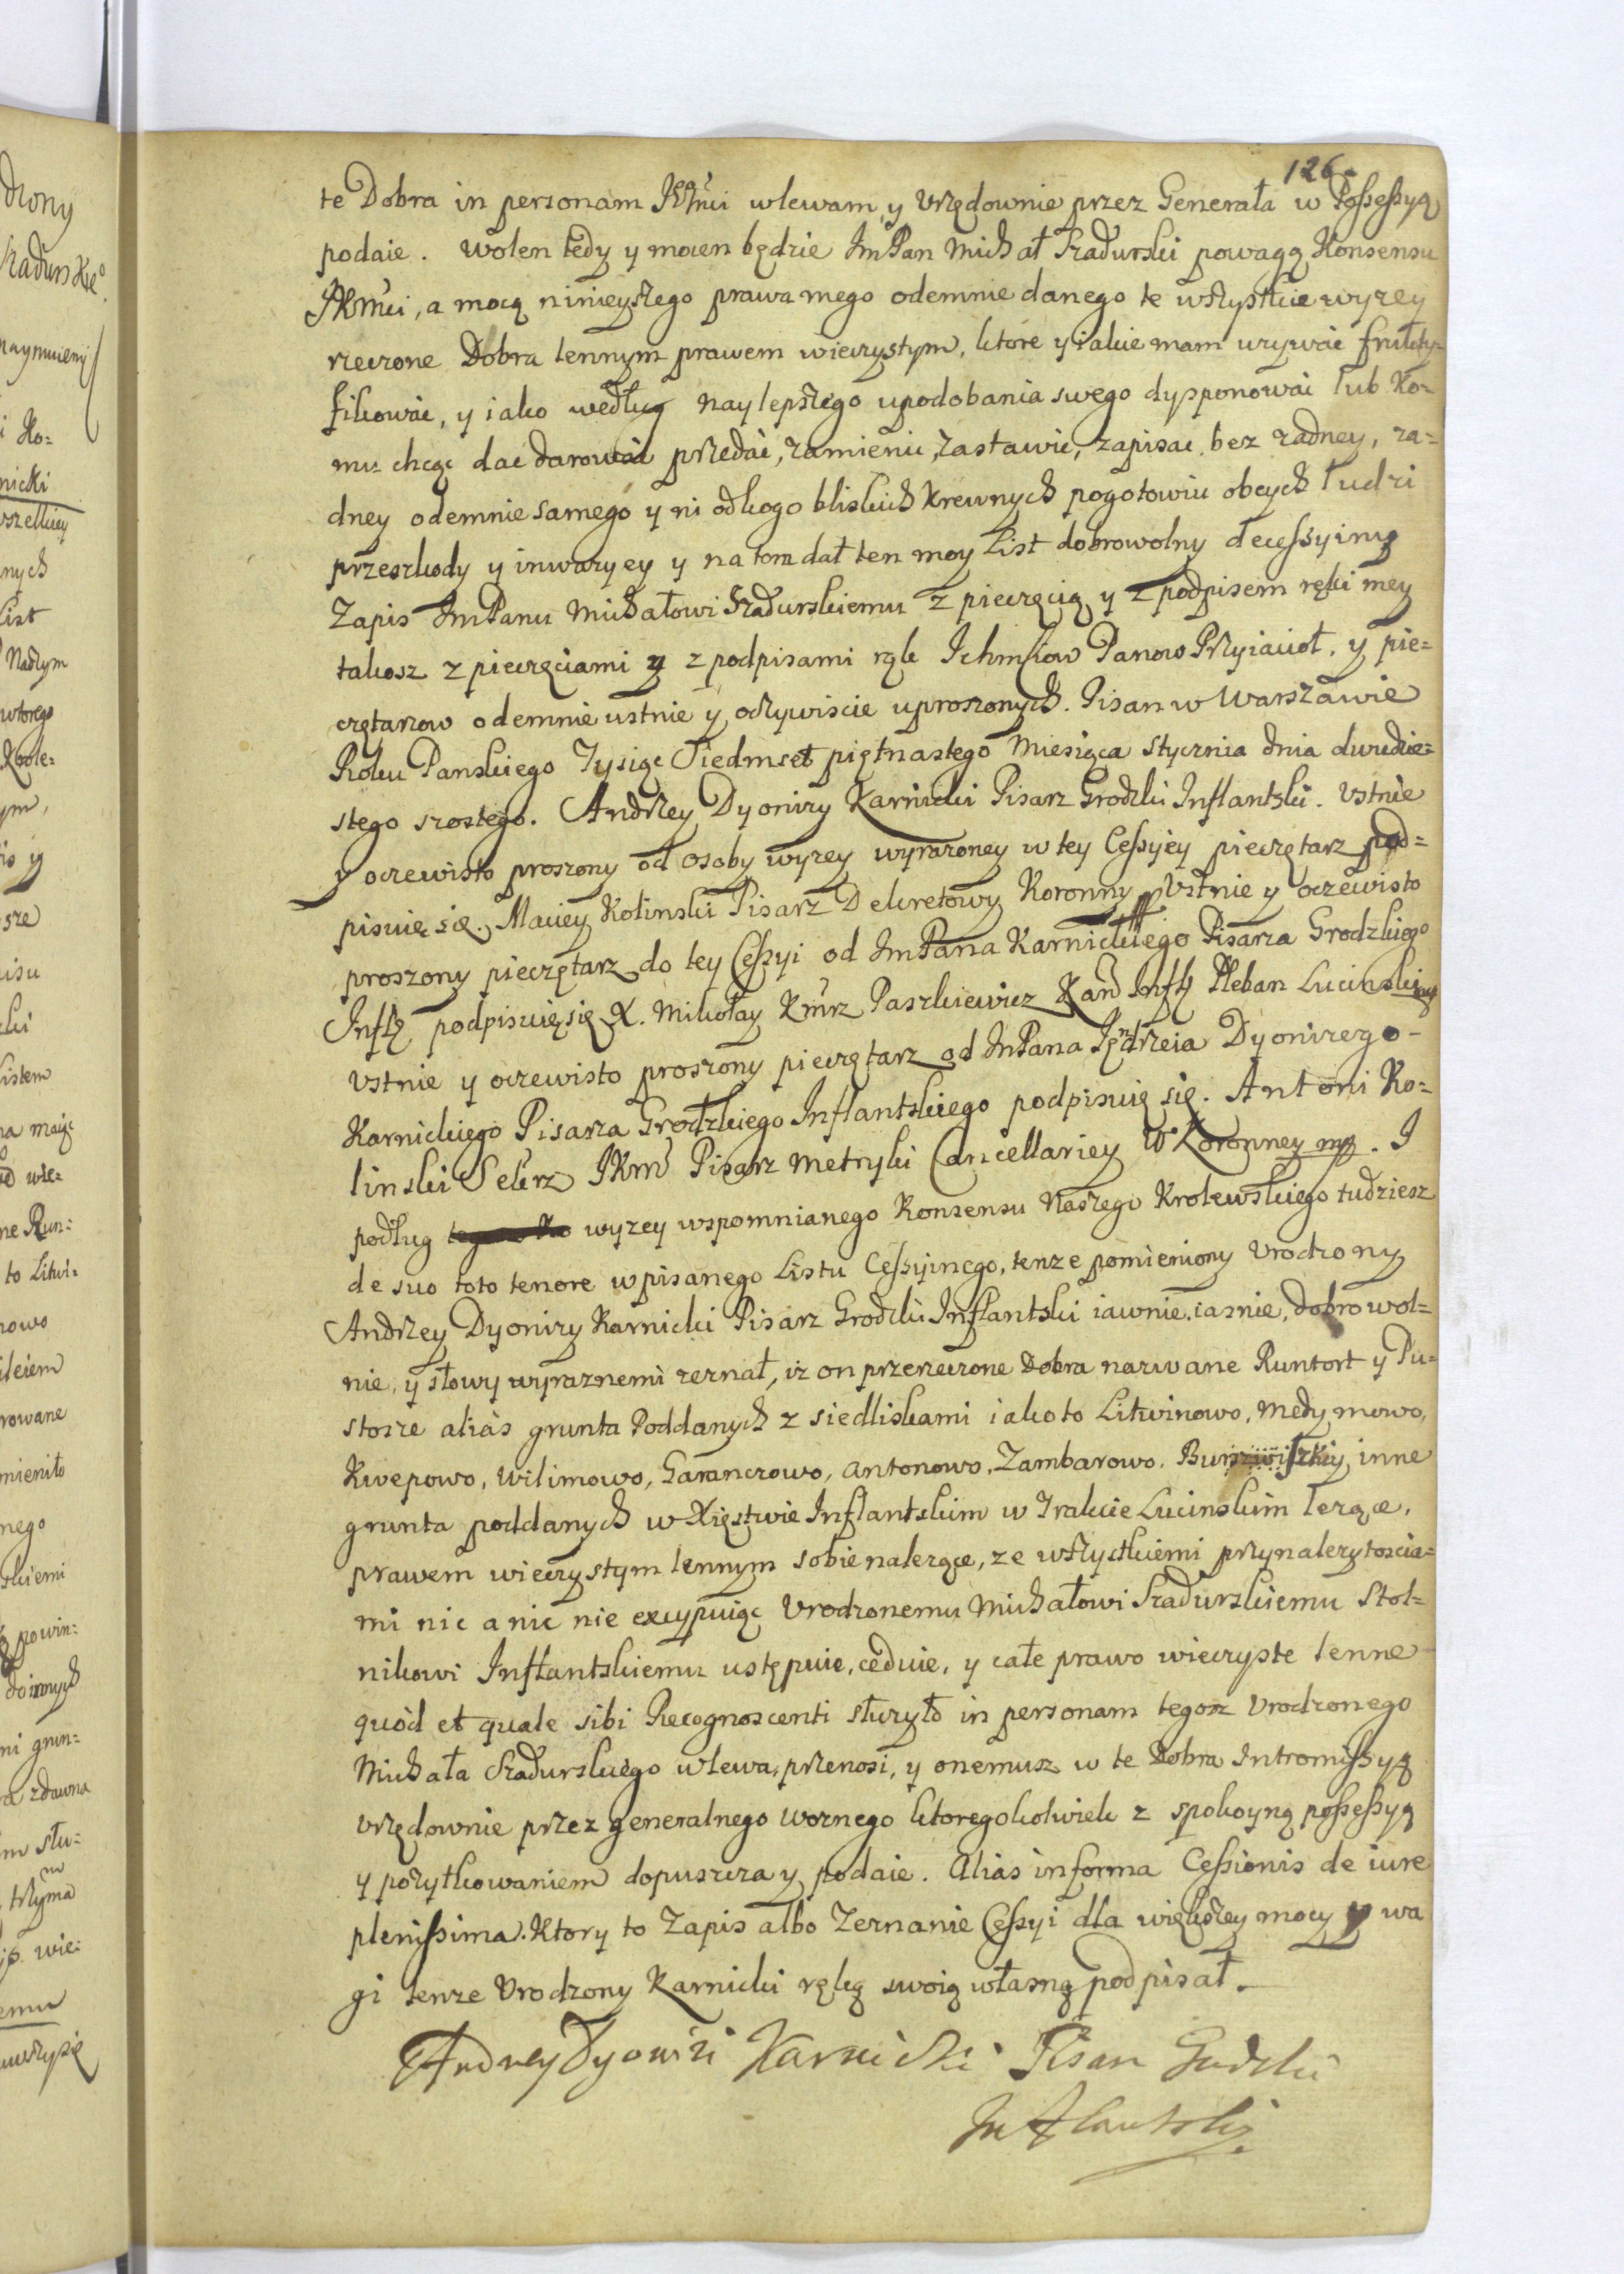 126.
te Dobra in personam JKMci wlewam, y Vrzędownie przez Generała w Possessyą
podaie. wolen tedy y mocen będzie ImPan Michał Szadurski powagą Konsensu
JKMci, a mocą ninieyszego prawa mego odemnie danego te wszystkie wyzey
rzeczone Dobra lennym prawem wieczystym, ktore y iakie mam uzywac frukty=
fikowac, y iako według naylepszego upodobania swego dysponowac lub ko=
mu chcąc dac darowac przedac, zamienic, zastawic, zapisac bez zadney, za=
dney odemnie samego y ni odkogo bliskich krewnych pogotowiu obcych ludzi
przeszkody y inwazyey y na tom dał ten moy List dobrowolny Cessyiny
Zapis ImPanu Michałowi Szadurskiemu z pieczęcią y z podpisem ręki mey
takosz z pieczęciami y z podpisami rąk Ichmsciow Panow Przyiacioł, y pie=
czętarzow odemnie ustnie y oczywiscie uproszonych. Pisan w Warszawie
Roku Panskiego Tysiąc Siedmset piętnastego Miesiąca Stycznia dnia dwudzie=
stego szostego. Andrzey Dyonizy Karnicki Pisarz Grodzki Inflantski. Vstnie
y oczewisto proszony od osoby wyzey wyrazoney w tey Cessyiey pieczętarz pod=
pisuię się. Maciey Kolinski Pisarz Dekretowy Koronny Vstnie y oczewisto
proszony pieczętarz do tey Cessyi od ImPana Karnickiego Pisarza Grodzkiego
Infl podpisuię się X. Mikołay Paszkiewicz Kan Infl Pleban Lucinski
Vstnie y oczewisto proszony pieczętarz od ImPana Jędrzeia Dyonizego
Karnickiego Pisarza Grodzkiego Inflantskiego podpisuię się. Antoni Ko=
linski Sekrz JKM Pisarz Metryki Cancellariey W. Koronney mp. I
podług wyzey wspomnianego Konsensu Naszego Krolewskiego tudziesz
de suo toto tenore wpisanego Listu Cessyinego, tenze pomieniony Vrodzony
Andrzey Dyonizy Karnicki Pisarz Grodzki Inflantski iawnie, iasnie, dobrowol=
nie, y słowy wyraznemi zeznał, iz on przerzeczone Dobra nazwane Runtort y Pu=
stosze alias grunta Poddanych z siedliskami iakoto Litwinowo, Medymowo,
Kwepowo, Wilimowo, Garanczowo, Antonowo, Zambarowo, y inne
grunta poddanych w Xięstwie Inflantskim w Trakcie Lucinskim lezące,
prawem wieczystym lennym sobie nalezące, ze wszystkiemi przynalezytoscia=
mi nic a nic nie excypuiąc Vrodzonemu Michałowi Szadurskiemu Stol=
nikowi Inflantskiemu ustępuie, ceduie, y całe prawo wieczyste lenne
quod et quale sibi Recognoscenti słuzyło in personam tegosz Vrodzonego
Michała Szadurskiego wlewa, przenosi, y onemusz w te Dobra Intromissyą
vrzędownie przez generalnego woznego ktoregokolwiek z spokoyną possessyą
y pozytkowaniem dopuszcza y podaie. Alias in forma Cessionis de iure
plenissima. Ktory to Zapis albo Zeznanie Cessyi dla większey mocy y wa
gi tenze Vrodzony Karnicki ręką swoią własną podpisał.
Andrzey Dyonizi Karnicki Pisarz Grodzki
Inflantski